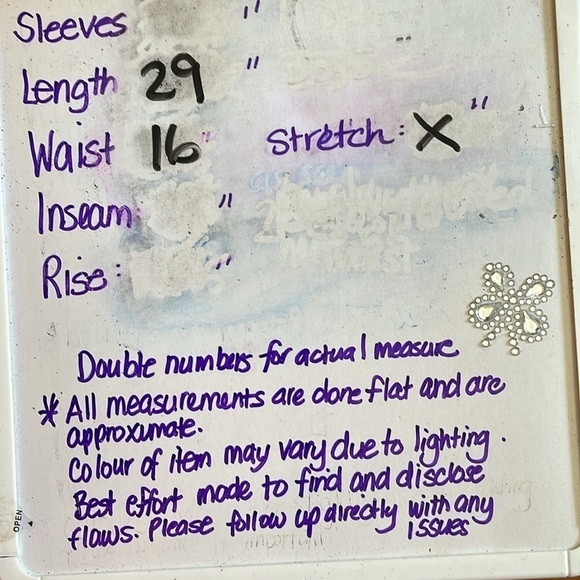 Sleeves "
Length 29 "
Waist 16 " Stretch: X "
Inseam "
Rise: "
Double numbers for actual measure
* All measurements are done flat and are
approxumate.
Colour of item may vary due to lighting.
Best effort made to find and disclose
flaws. Please follow up directly with any
issues
OPEN